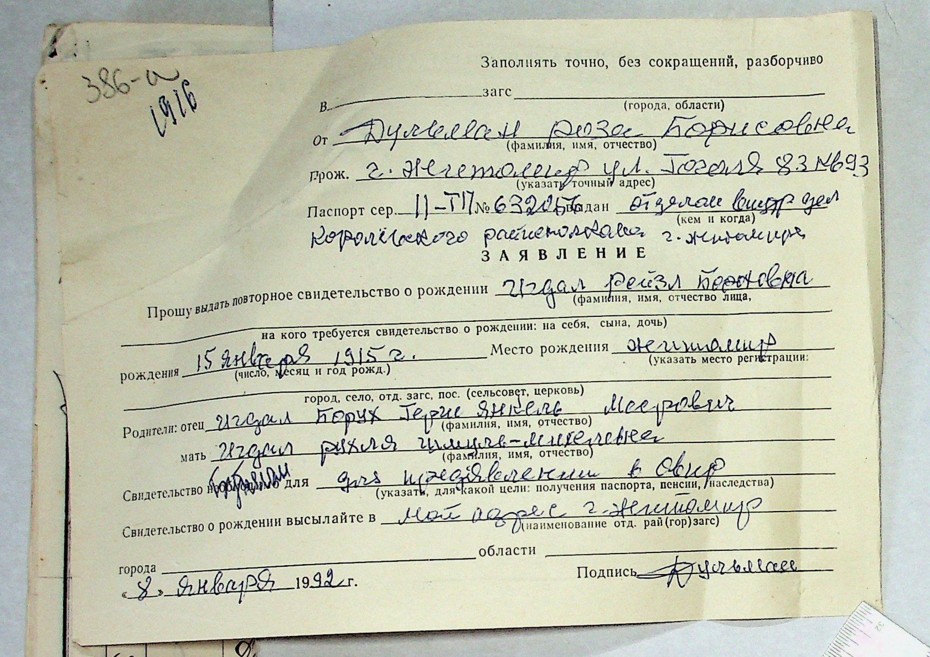 386-а
1916
Заполнять точно, без сокращений, разборчиво
В загс
(города, области)
От Дульман Роза Борисовна
(фамилия, имя, отчество)
Прож. г. Житомир ул. Гоголя 83 №693
(указать точный адрес)
Паспорт сер. II-ТП № 632056 выдан отделом внутр дел
(кем и когда)
Королёвского райисполкома г. Житомира
ЗАЯВЛЕНИЕ
Прошу выдать повторное свидетельство о рождении Игдал Рейзл Боруховна
(фамилия, имя, отчество лица,
на кого требуется свидетельство о рождении: на себя, сына, дочь)
рождения 15 января 1915 г. Место рождения Житомир
(число, месяц и год рожд.) (указать место регистрации:
город, село, отд. загс, пос. (сельсовет, церковь)
Родители: отец Игдал Борух Герш Янкель Меерович
(фамилия, имя, отчество)
мать Игдал Рихля Шмуль-Михелевна
(фамилия, имя, отчество)
Свидетельство для для предявлении в Овир
(указать, для какой цели: получения паспорта, пенсии, наследства)
Свидетельство о рождении высылайте в мой адрес г. Житомир
(наименование отд. рай(гор)загс)
города области
«8» Января 1992 г. Подпись Дульман